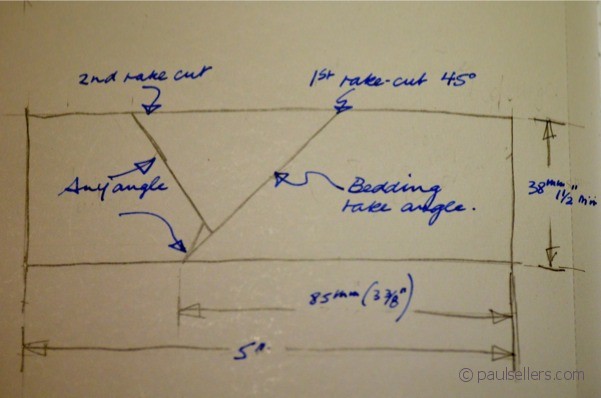 2nd rake cut
1st rake-cut 45°
Any angle
Bedding
rake angle.
38mm
1 1/2" min
85mm (3 3/8")
5".
© paulsellers.com